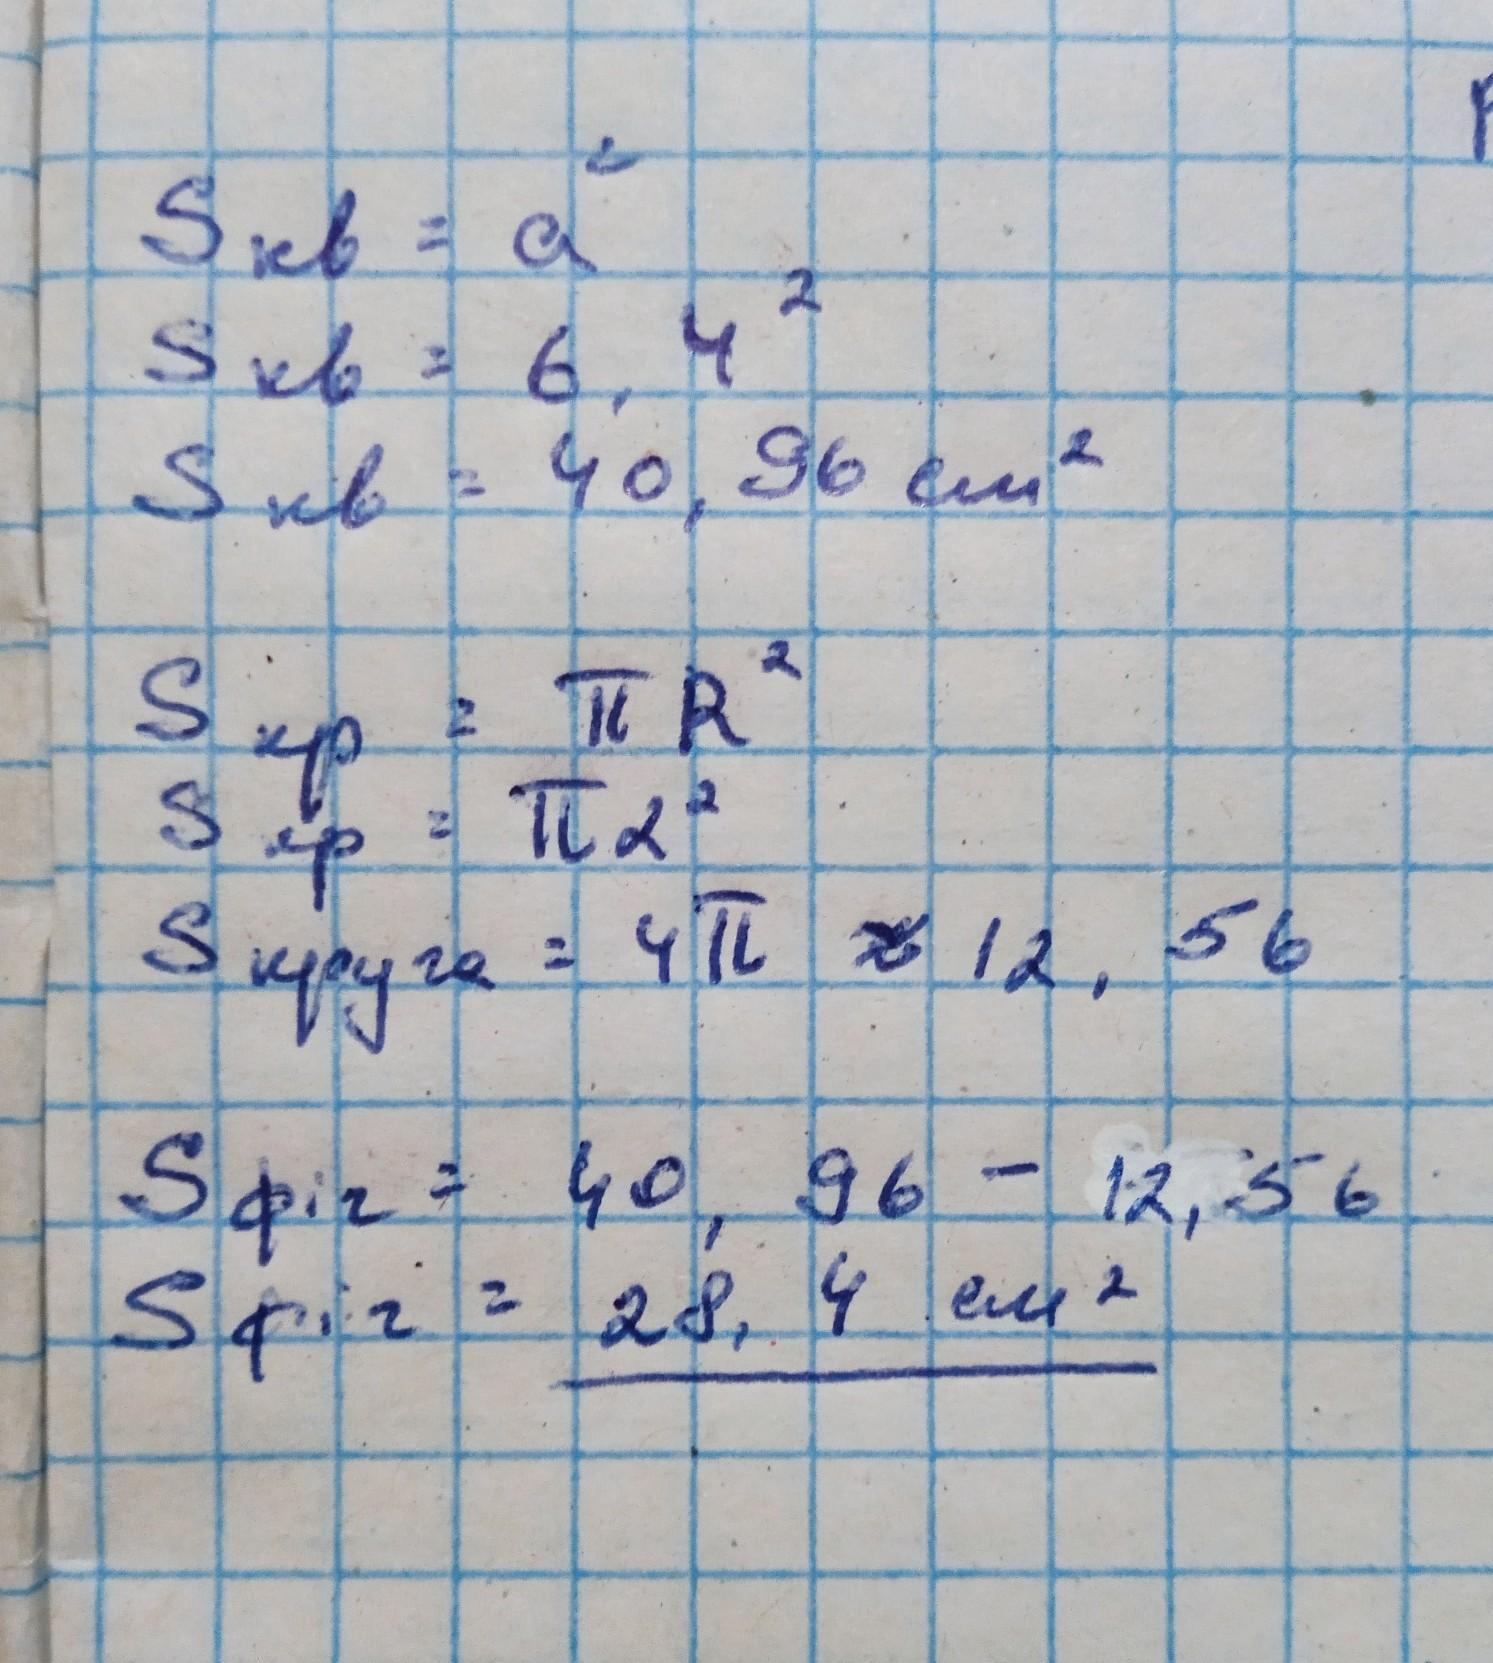 S кв = a²
S кв = 6,4²
S кв = 40,96 см²
S кр = πR²
S кр = π2²
S круга = 4π ≈ 12,56
S фіг = 40,96 - 12,56
S фіг = 28,4 см²